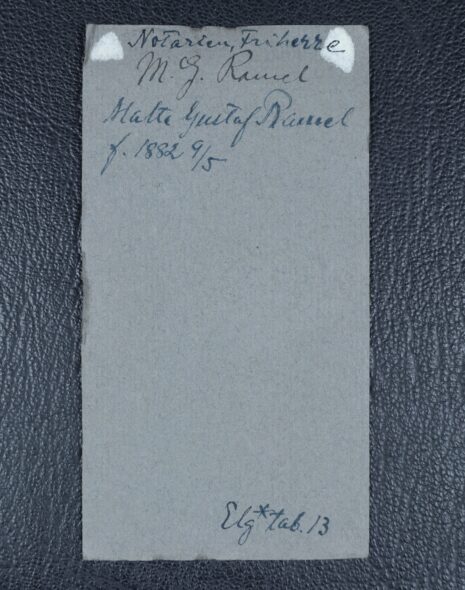 Notarien, Friherre
M. G. Ramel
Malte Gustaf Ramel
f. 1882 9/5
Elg* tab. 13